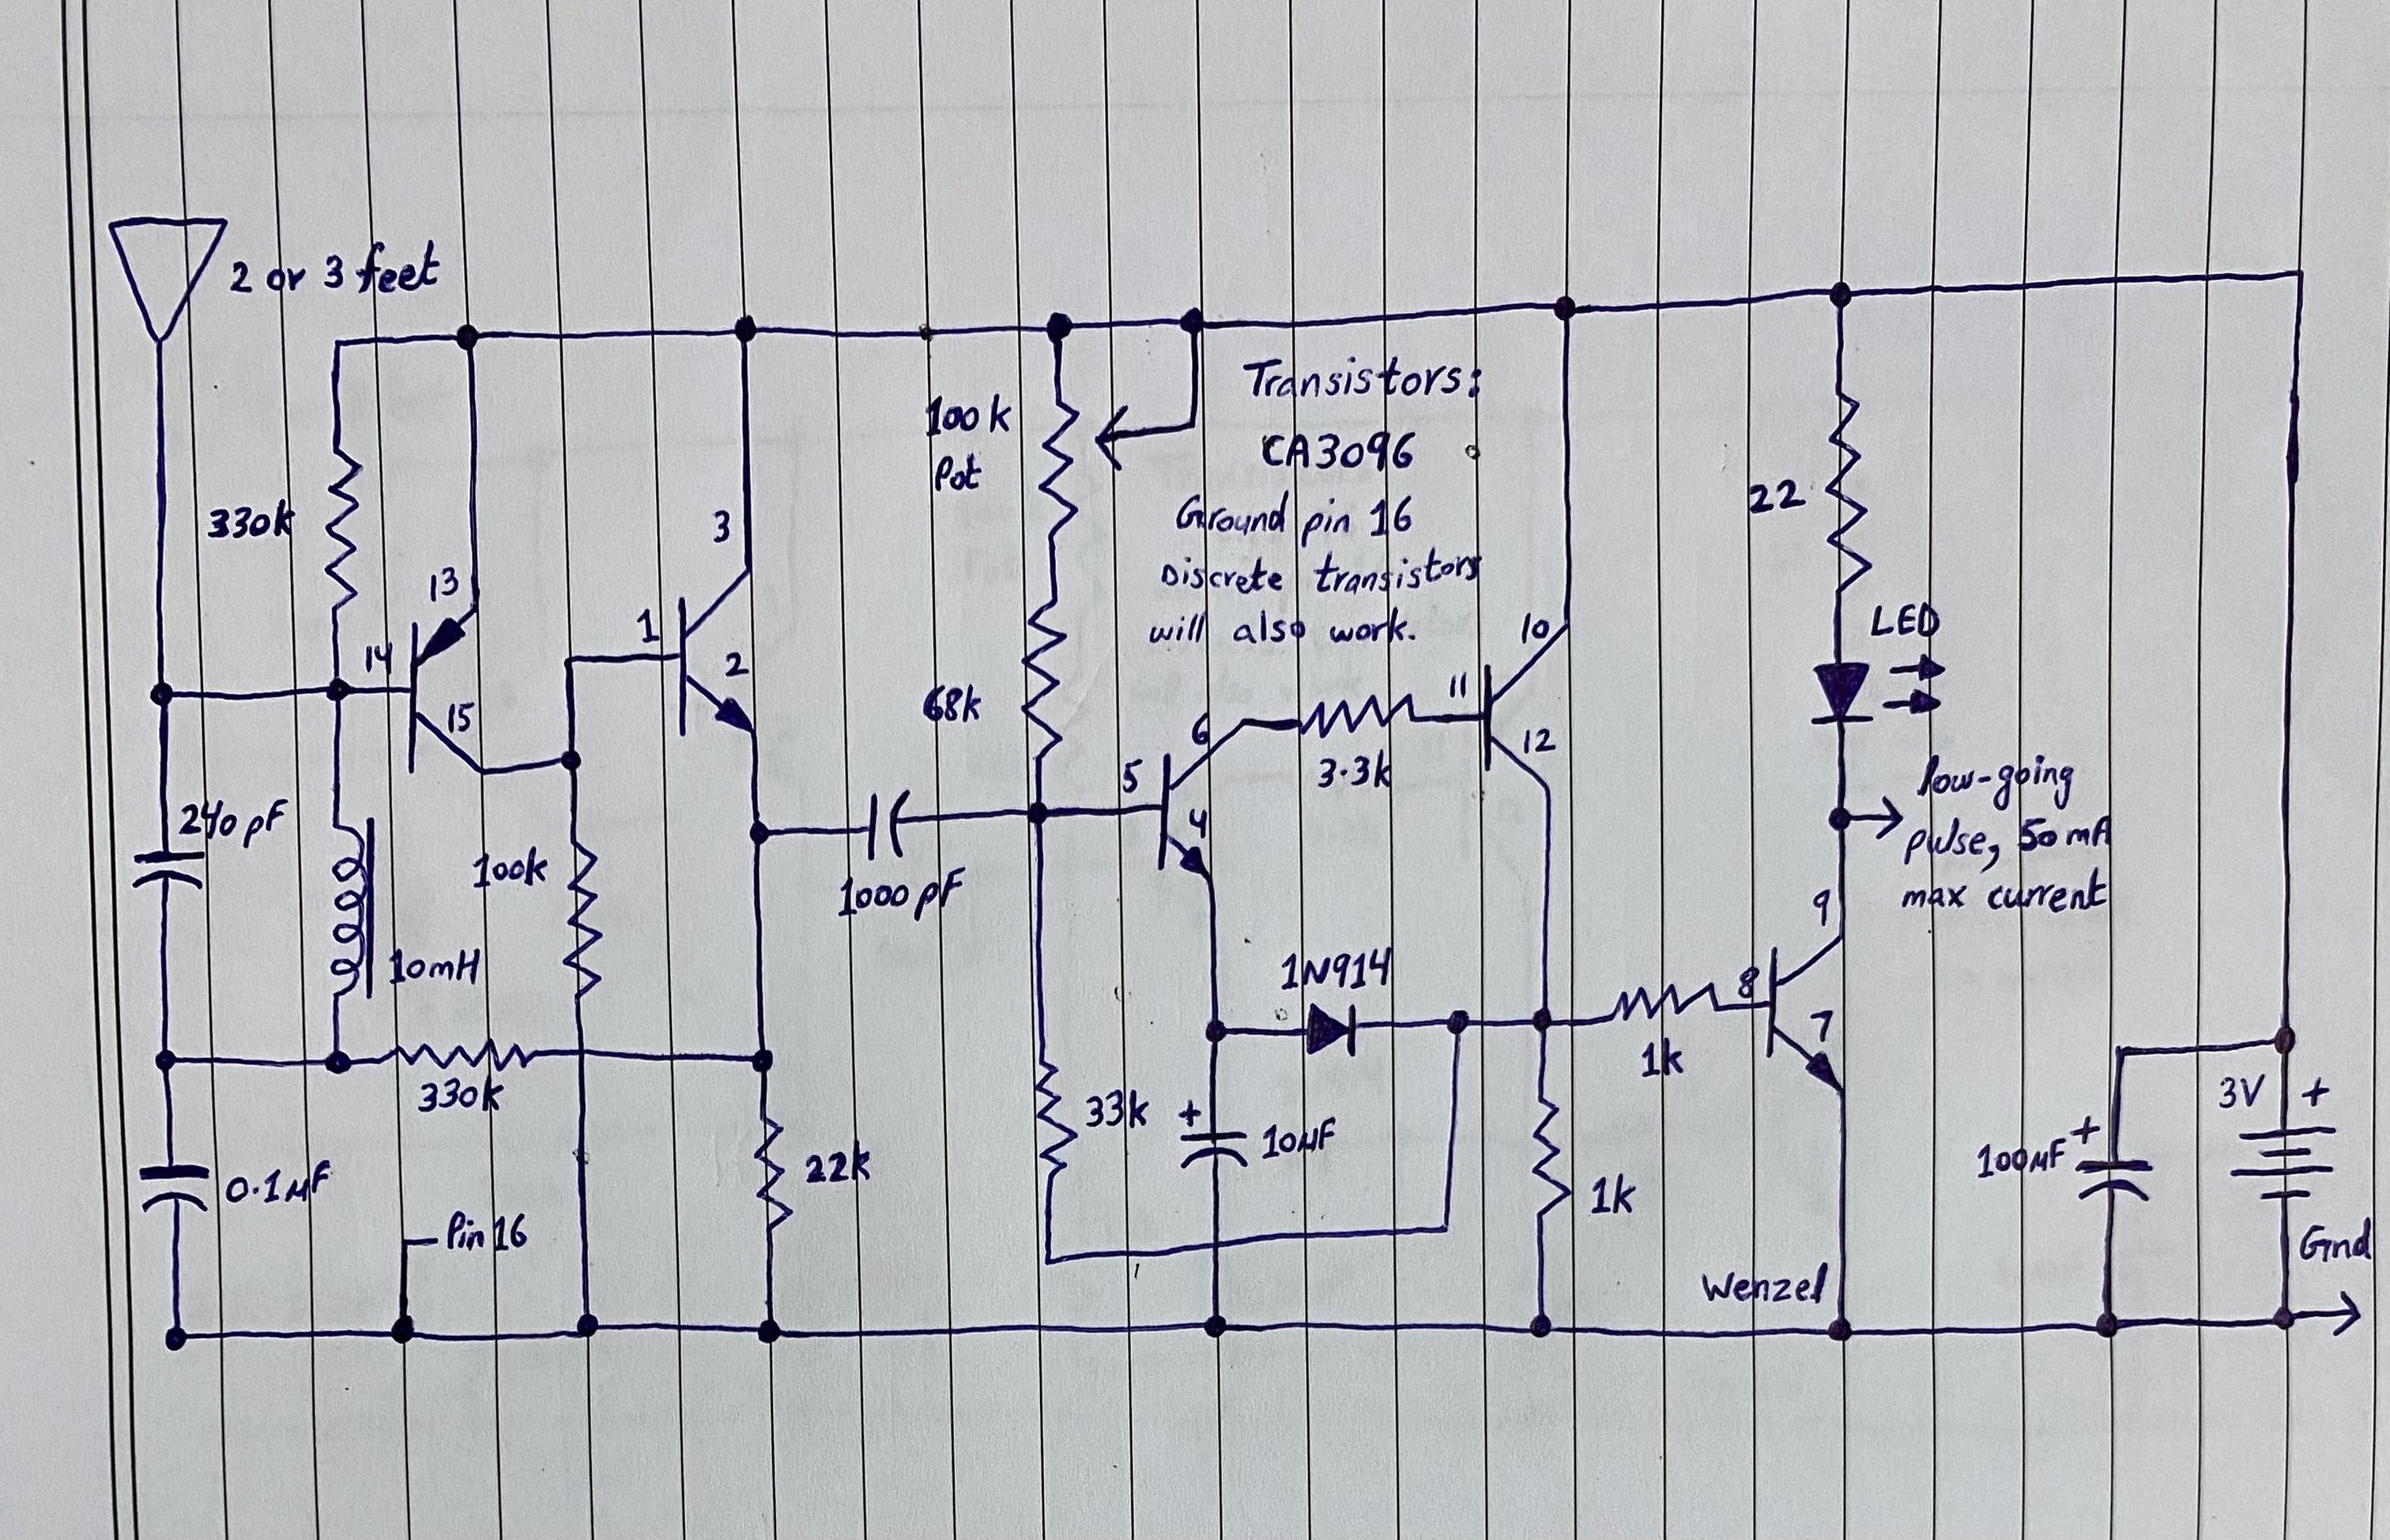 2 or 3 feet
330k
13
14
15
240pF
10mH
100k
330k
0.1µF
Pin 16
1
3
2
22k
1000pF
100k
Pot
68k
Transistors:
CA3096
Ground pin 16
Discrete transistors
will also work.
5
6
4
3.3k
11
10
12
1N914
33k
+
10µF
1k
1k
22
LED
low-going
pulse, 50mA
max current
9
8
7
Wenzel
100µF
+
3V
+
Gnd